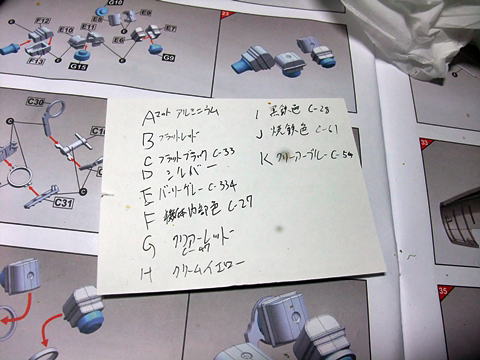 G10
F12
E10
E11
E9
E8
E6
E7
F13
G15
G9
C30
C31
A マット アルミニウム
B フラットレッド
C フラットブラック C-33
D シルバー
E バーリーグレー C-334
F 機体内部色 C-27
G クリアーレッド
H クリームイエロー
I 黒鉄色 C-28
J 焼鉄色 C-61
K クリアーブルー C-54
33
35